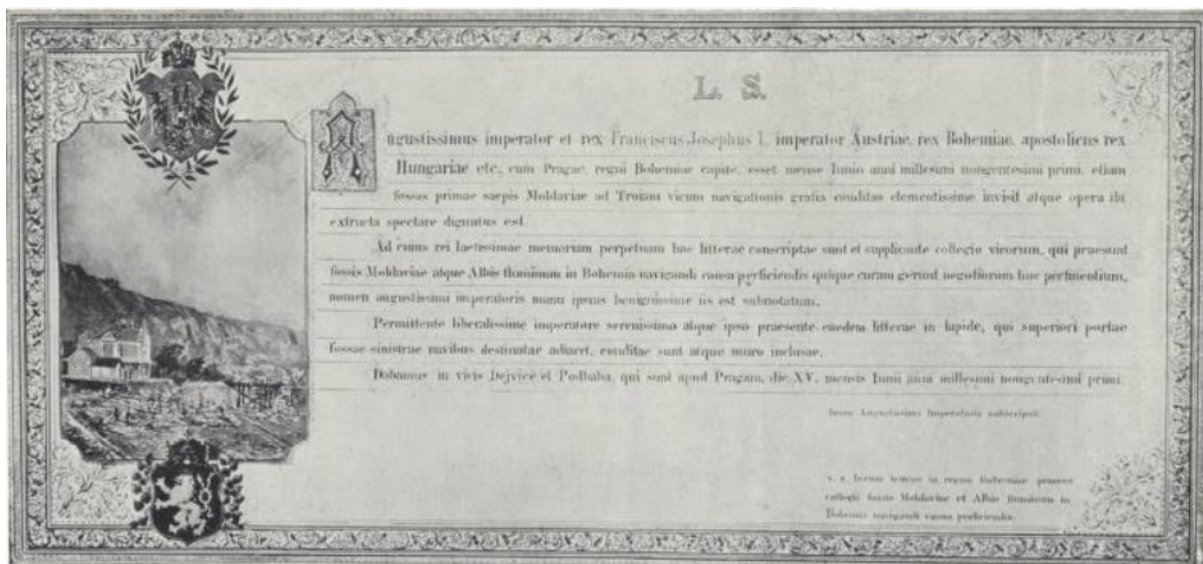 L. S.
Augustissimus imperator et rex Franciscus Josephus I. imperator Austriae, rex Bohemiae, apostolicus rex
Hungariae etc., cum Pragae, regni Bohemiae capite, esset mense Iunio anni millesimi nongentesimi primi, etiam
fossas primae saepis Moldaviae ad Troiam vicum navigationis gratia conditas clementissime invisit atque opera ibi
extructa spectare dignatus est.
Ad cuius rei laetissimae memoriam perpetuam hae litterae conscriptae sunt et supplicante collegio virorum, qui praesunt
fossis Moldaviae atque Albis fluminum in Bohemia navigandi causa perficiendis quique curam gerunt negotiorum huc pertinentium,
nomen augustissimi imperatoris manu ipsius benignissime iis est subnotatum.
Permittente liberalissime imperatore serenissimo atque ipso praesente eaedem litterae in lapide, qui superiori portae
fossae sinistrae navibus destinatae adiacet, conditae sunt atque muro inclusae.
Dabamus in vicis Dejvice et Podbaba, qui sunt apud Pragam, die XV. mensis Iunii anni millesimi nongentesimi primi.
Iussu Augustissimi Imperatoris subscripsit:
locum tenens in regno Bohemiae praeses
collegii fossis Moldaviae et Albis fluminum in
Bohemia navigandi causa perficiendis.